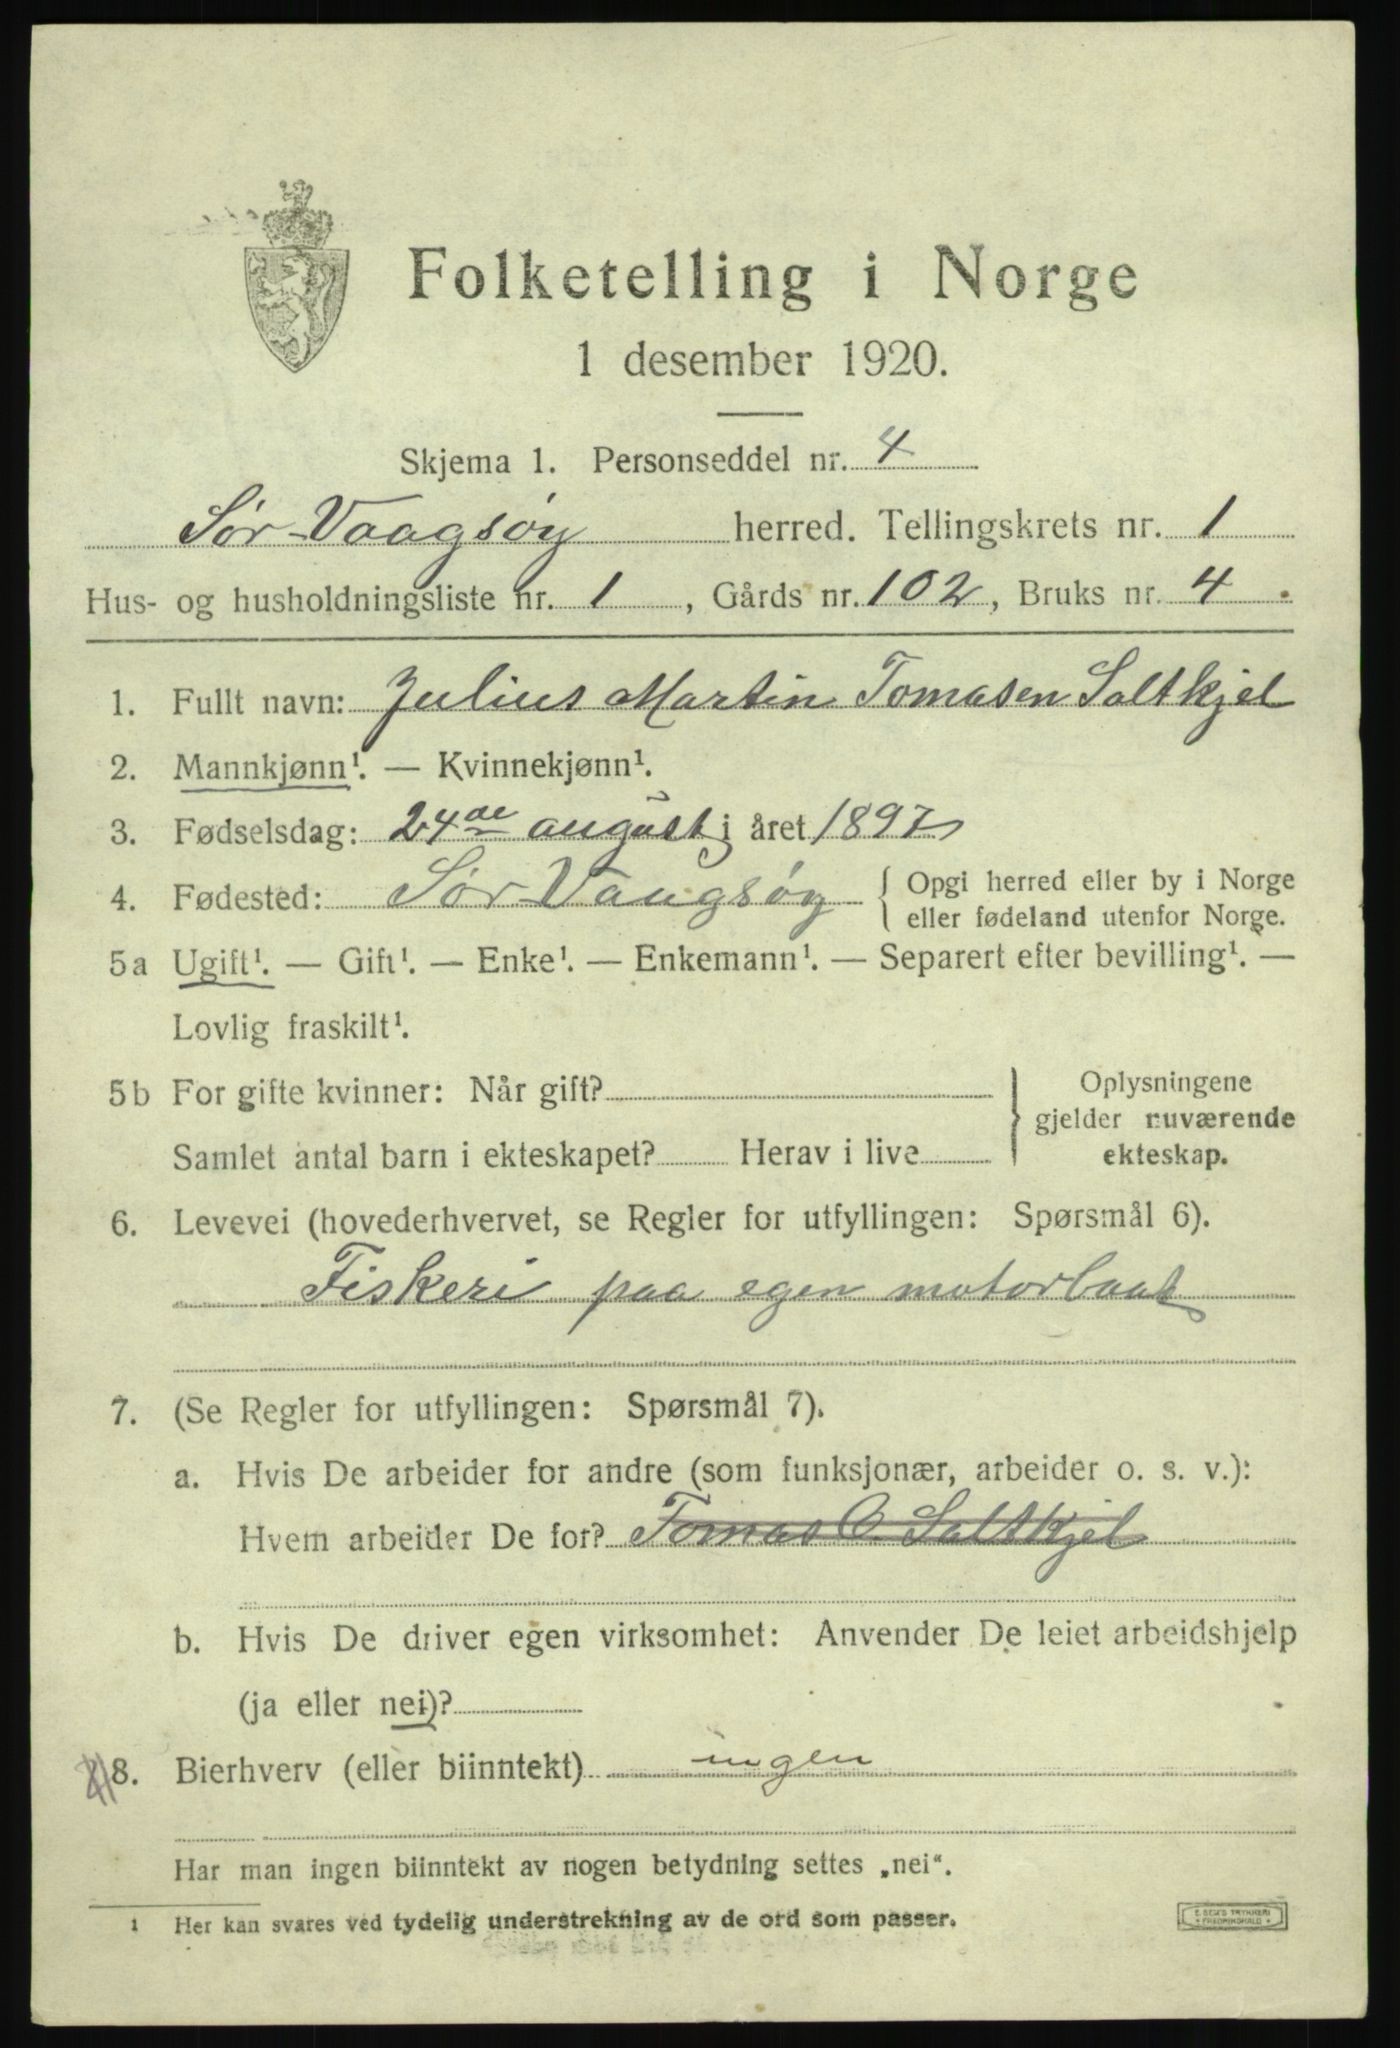 Folketelling i Norge
1 desember 1920.
Skjema 1. Personseddel nr. 4
Sør-Vaagsøy herred. Tellingskrets nr. 1
Hus- og husholdningsliste nr. 1, Gårds nr. 102, Bruks nr. 4.
1. Fullt navn: Julius Martin Tomasen Saltkjel
2. Mannkjønn¹. — Kvinnekjønn¹.
3. Fødselsdag: 24de august i året 1897
4. Fødested: Sør Vaagsøy { Opgi herred eller by i Norge
eller fødeland utenfor Norge.
5a Ugift¹. — Gift¹. — Enke¹. — Enkemann¹. — Separert efter bevilling¹. —
Lovlig fraskilt¹.
5b For gifte kvinner: Når gift?
Samlet antal barn i ekteskapet? Herav i live
} Oplysningene
gjelder nuværende
ekteskap.
6. Levevei (hovederhvervet, se Regler for utfyllingen: Spørsmål 6).
Fiskeri paa egen motorbaat
7. (Se Regler for utfyllingen: Spørsmål 7).
a. Hvis De arbeider for andre (som funksjonær, arbeider o. s. v.):
Hvem arbeider De for? Tomas O. Saltkjel
b. Hvis De driver egen virksomhet: Anvender De leiet arbeidshjelp
(ja eller nei)?
8. Bierhverv (eller biinntekt) ingen
Har man ingen biinntekt av nogen betydning settes „nei“.
¹ Her kan svares ved tydelig understrekning av de ord som passer.